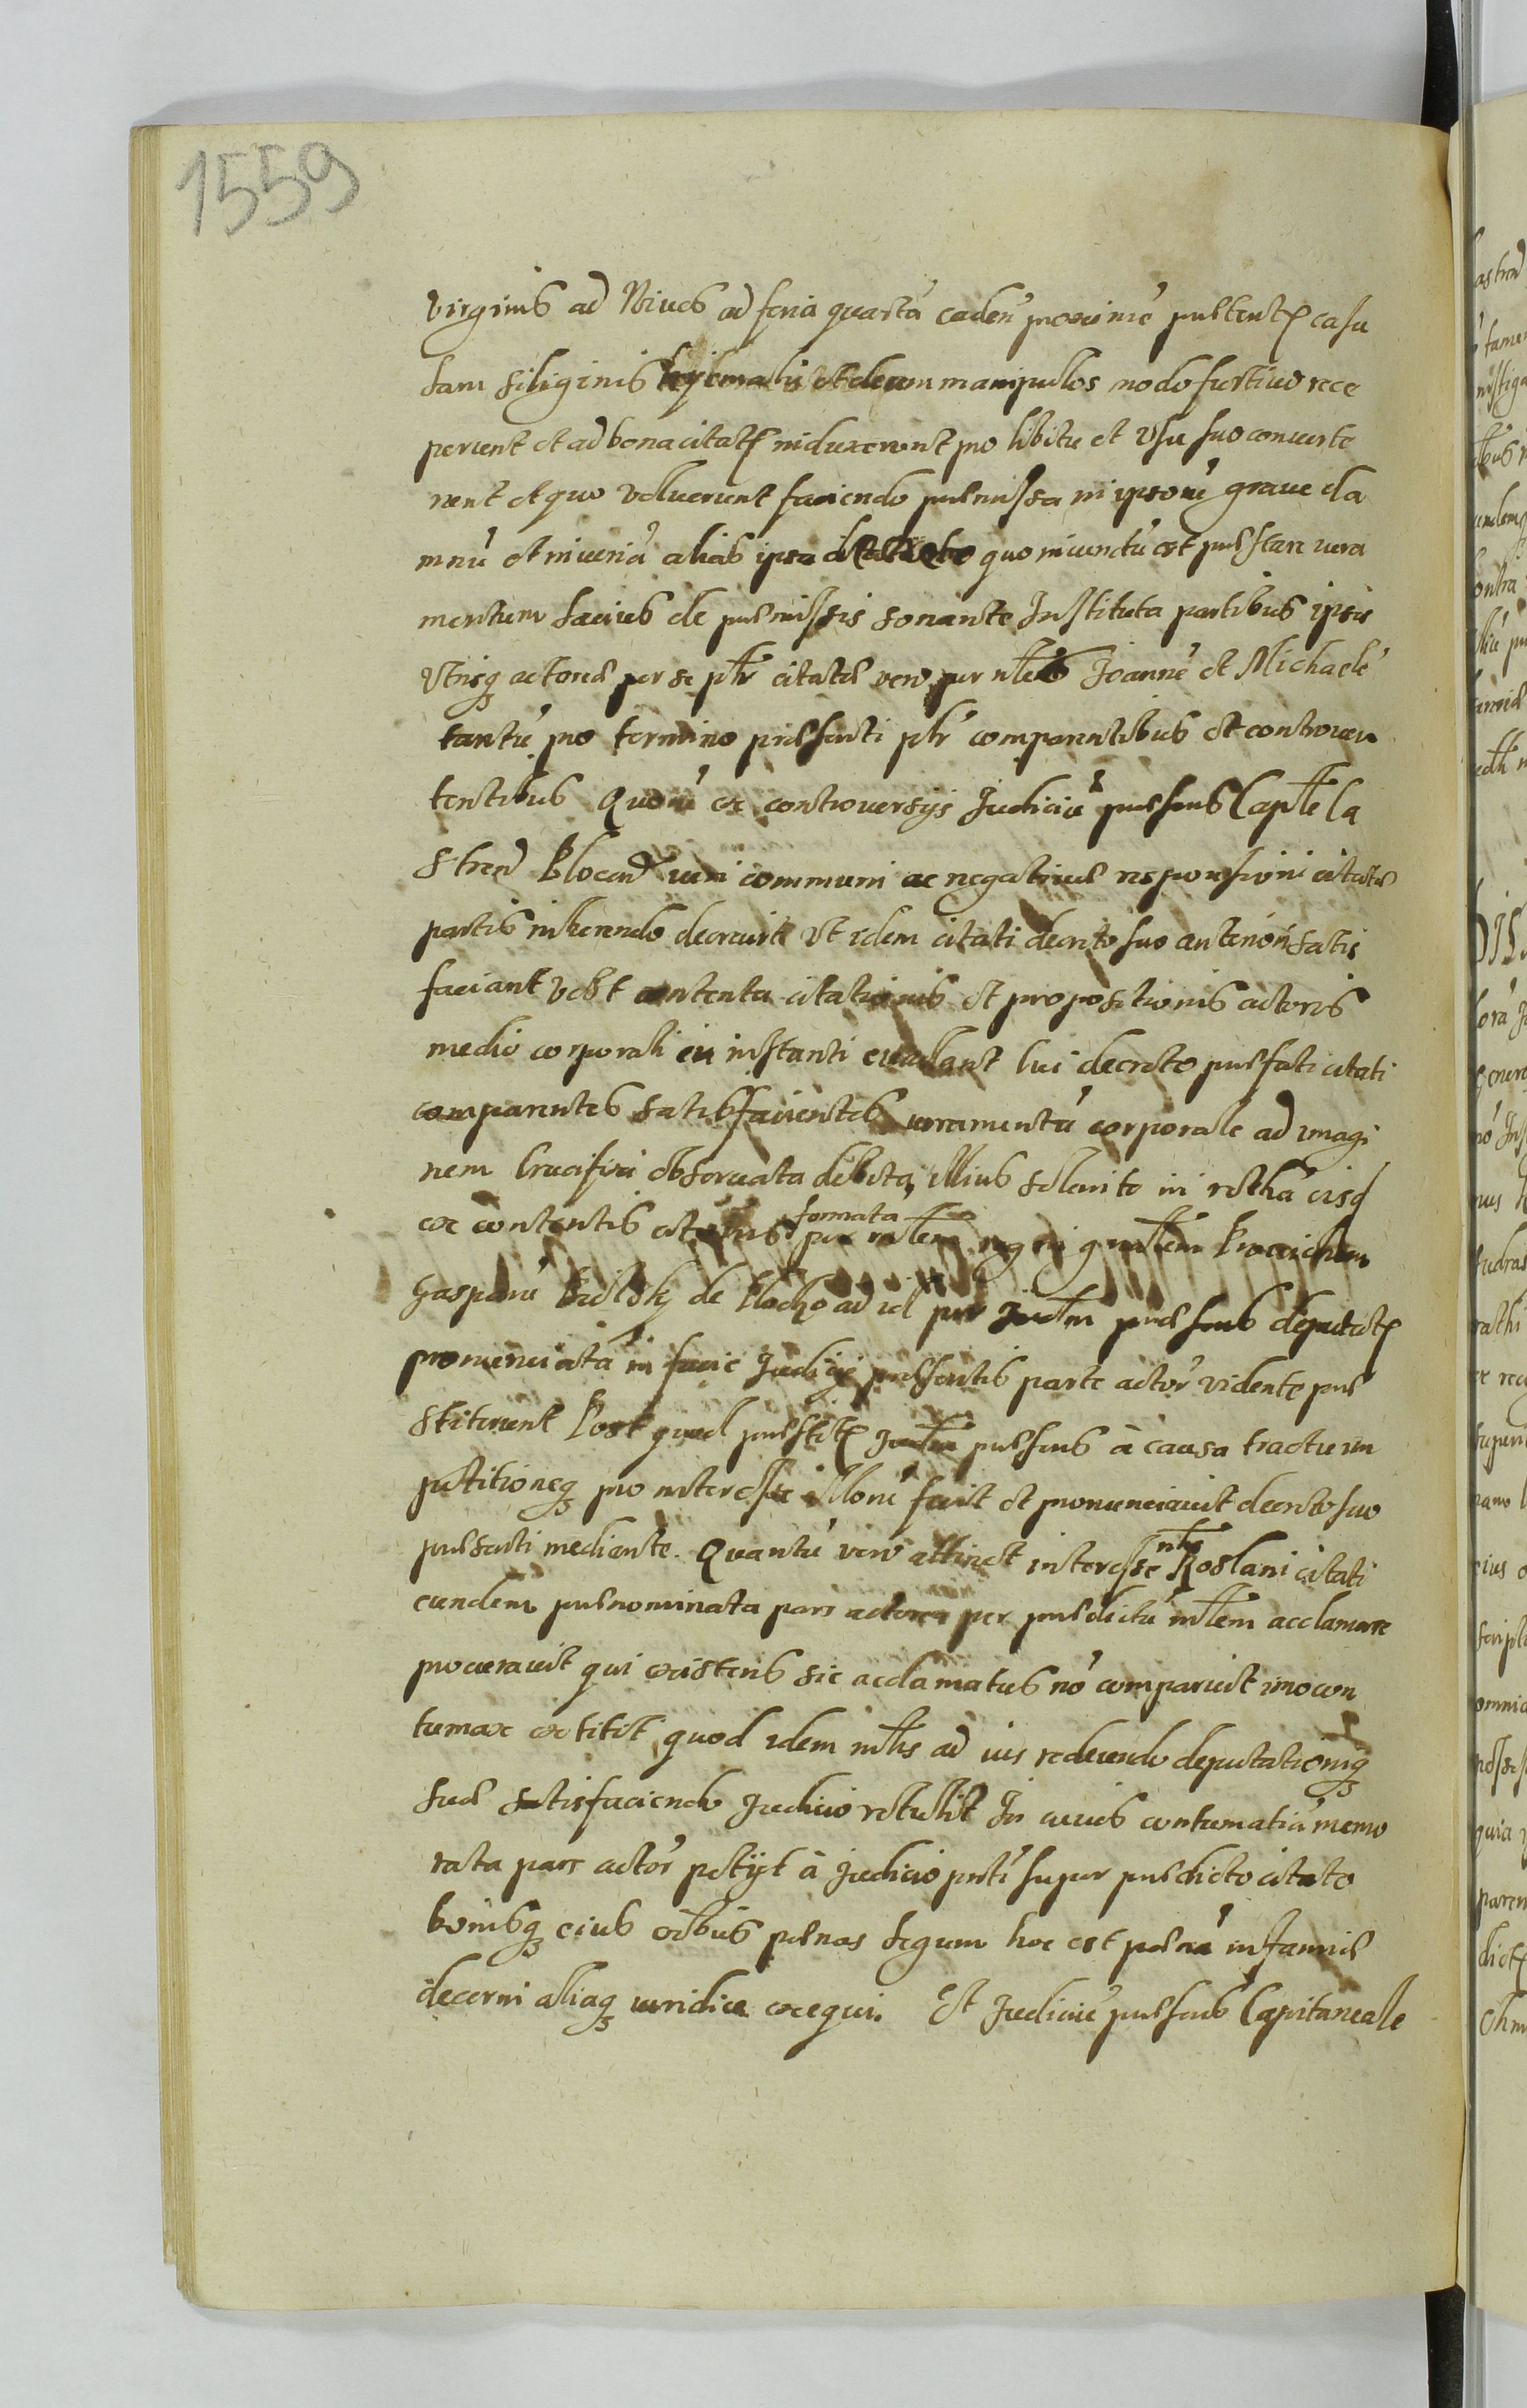 1559
Virginis ad Nives ad feria quartā caden̄ proxime pręteritę casu
sam siliginis hyemalis et decem manipulos modo furtivo rece
perunt et ad bona citatę induxerunt pro libitu et usu suo converte
runt et quo voluerunt faciendo pręmissa in ipsorū grave da
mnū et iniuriā alias ipsa quo inventū est pręstare iura
mentum latius de pręmissis sonante Instituta partibus ipsis
Utrisq actorea per se pntr citata vero per nbles Joannē et Michaelē
tantū pro termino pręsenti pntr comparentibus et controver
tentibus Quorū ex controversys Judiciū pręsens Captle Ca
stren̄ Plocen̄ iuri communi ac negativę responsioni citatę
partis inhęrendo decrevit Ut idem citati decreto suo anteriori satis
faciant Velut contenta citationis et propositionis actoris
medio corporali in instanti evadant Cui decreto pręfati citati
comparentes satisfacientes iuramentū corporale ad imagi
nem Crucifixi observata debita illius solenitate in rothā eisd
ex contentis citationis formatā per mlem regni gnalem Providum
Gasparū de Plocko ad id per Judm pręsens deputatę
pronunciatā in facie Judicij pręsentis parte actor vidente prę
stiterunt Post quod pręstitę Judm pręsens à causa tractu im
petitioneq pro interesse illorū fecit et pronunciavit decreto suo
pręsenti mediante. Quantū vero attinet interesse nblis Roslani citati
eundem pręnominata pars actorea per prędictū mlem acclamare
procuravit qui existens sic acclamatus nō comparuit imo con
tumax extitit quod idem mlis ad ius redeundo deputationiq
suę satisfaciendo Judicio retulit In cuius contumatiā memo
rata pars actor petijt à Judicio pnti super prędicto citato
bonisq eius oibus pęnas legum hoc est pęnā infamię
decerni aliaq iuridice exequi. Et Judiciū pręsens Capitaneale